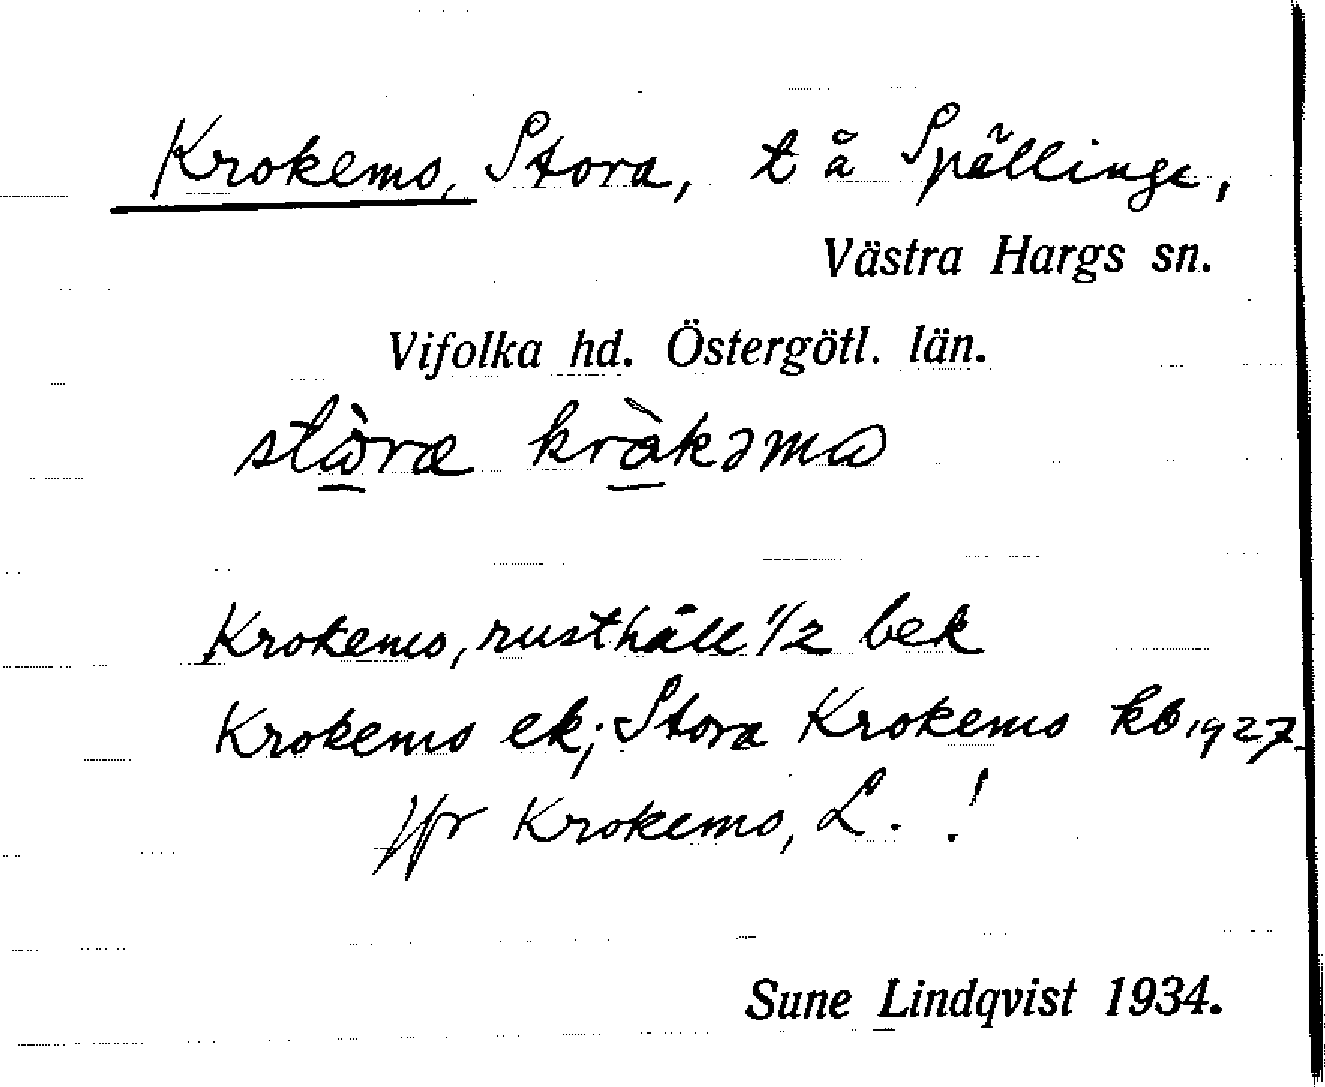 Krokemo, Stora, t å Spellinge,
Västra Hargs sn.
Vifolka hd. Östergötl. län.
stòra kràkəma
Krokemo, rusthåll 1/2 bek
Krokemo ek; Stora Krokemo kb 1927.
Jfr Krokemo, L. !
Sune Lindqvist 1934.